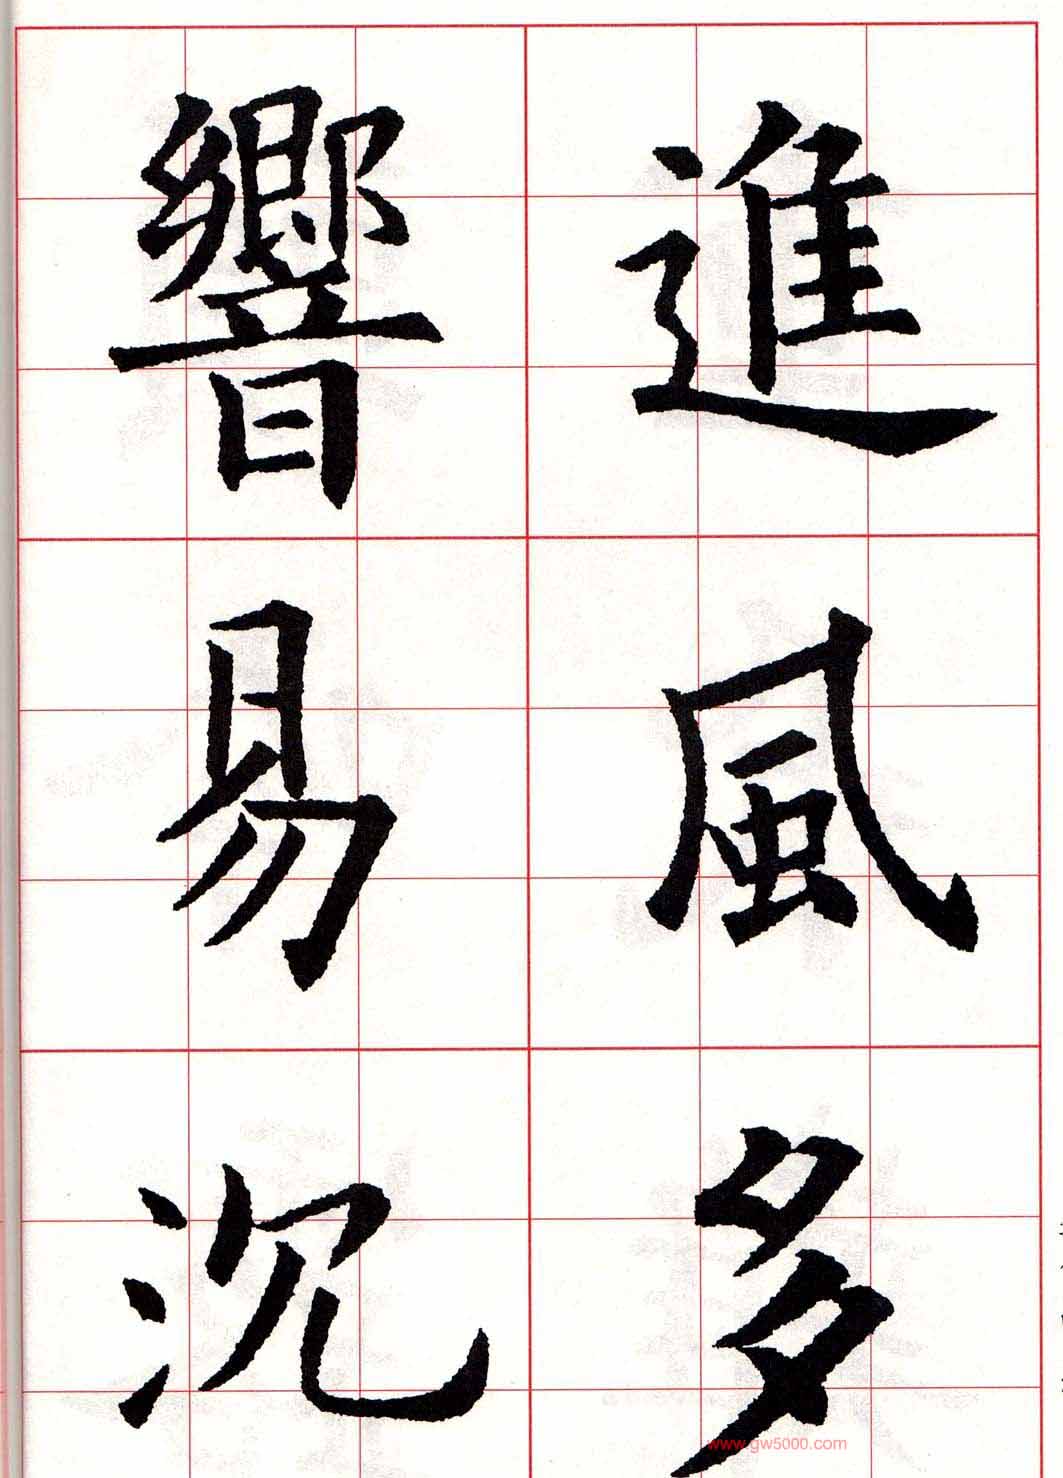 進風多
響易沉
www.gw5000.com